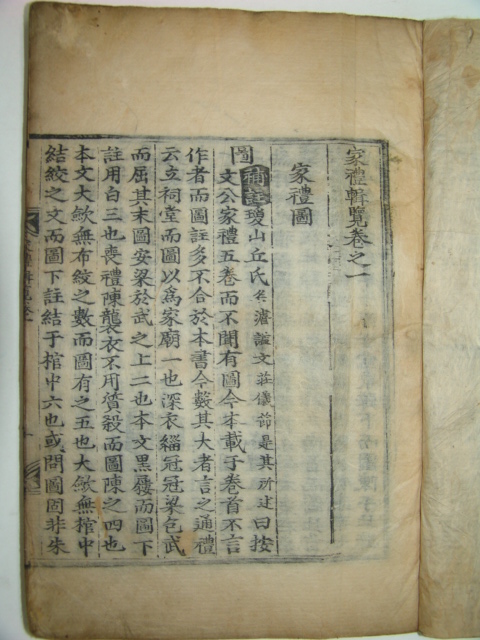 家禮輯覽卷之一
家禮圖
圖
補註瓊山丘氏名濬諡文莊儀節是其所述曰按
文公家禮五卷而不聞有圖今本載于卷首不言
作者而圖註多不合於本書今數其大者言之通禮
云立祠堂而圖以爲家廟一也深衣緇冠冠梁包武
而屈其末圖安梁於武之上二也本文黑屨而圖下
註用白三也喪禮陳襲衣不用質殺而圖陳之四也
本文大斂無布絞之數而圖有之五也大斂無棺中
結絞之文而圖下註結于棺中六也或問圖固非朱